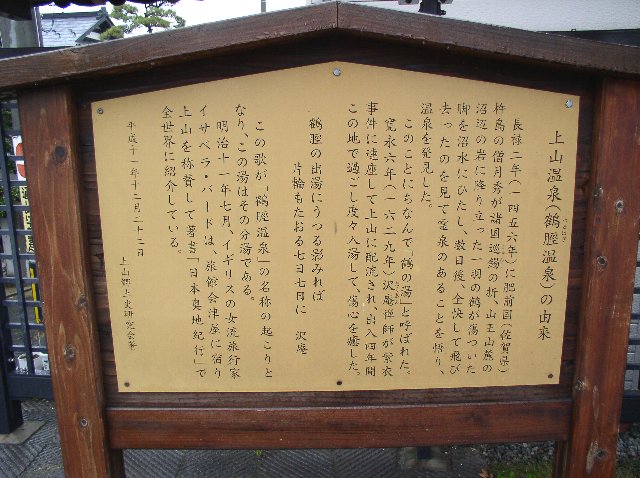 上山温泉(鶴脛温泉)の由来
長禄二年(一四五六年)に肥前国(佐賀県)
杵島の僧月秀が諸国巡錫の折、山王山麓の
沼辺の岩に降り立った一羽の鶴が傷ついた
脚を沼水にひたし、数日後、全快して飛び
去ったのを見て霊泉のあることを悟り、
温泉を発見した。
このことにちなんで「鶴の湯」と呼ばれた。
寛永六年(一六二九年)沢庵禅師が紫衣
事件に連座して上山に配流され、出入四年間
この地で過ごし度々入湯して、傷心を癒した。
鶴脛の出湯にうつる影みれば
片輪もたおる七日七日に 沢庵
この歌が「鶴脛温泉」の名称の起こりと
なり、この湯はその分湯である。
明治十一年七月、イギリスの女流旅行家
イサベラ・バードは、旅館会津屋に宿り
上山を称賛して著書「日本奥地紀行」で
全世界に紹介している。
平成十一年十二月二十二日
上山郷土史研究会筆